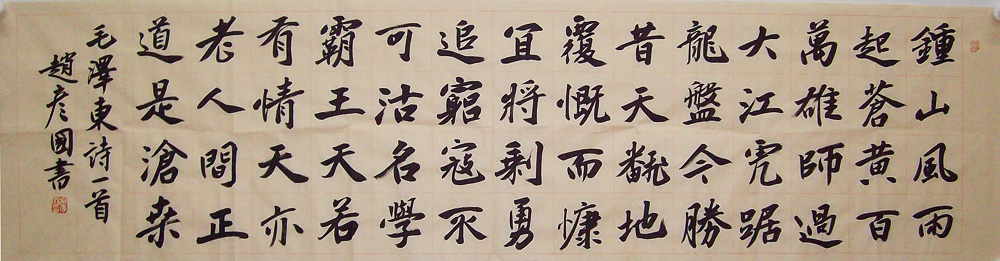 鍾山風雨
起蒼黃百
萬雄師過
大江虎踞
龍盤今勝
昔天飜地
覆慨而慷
宜將剩勇
追窮寇不
可沽名學
霸王天若
有情天亦
老人間正
道是滄桒
毛澤東詩一首
趙彦國書